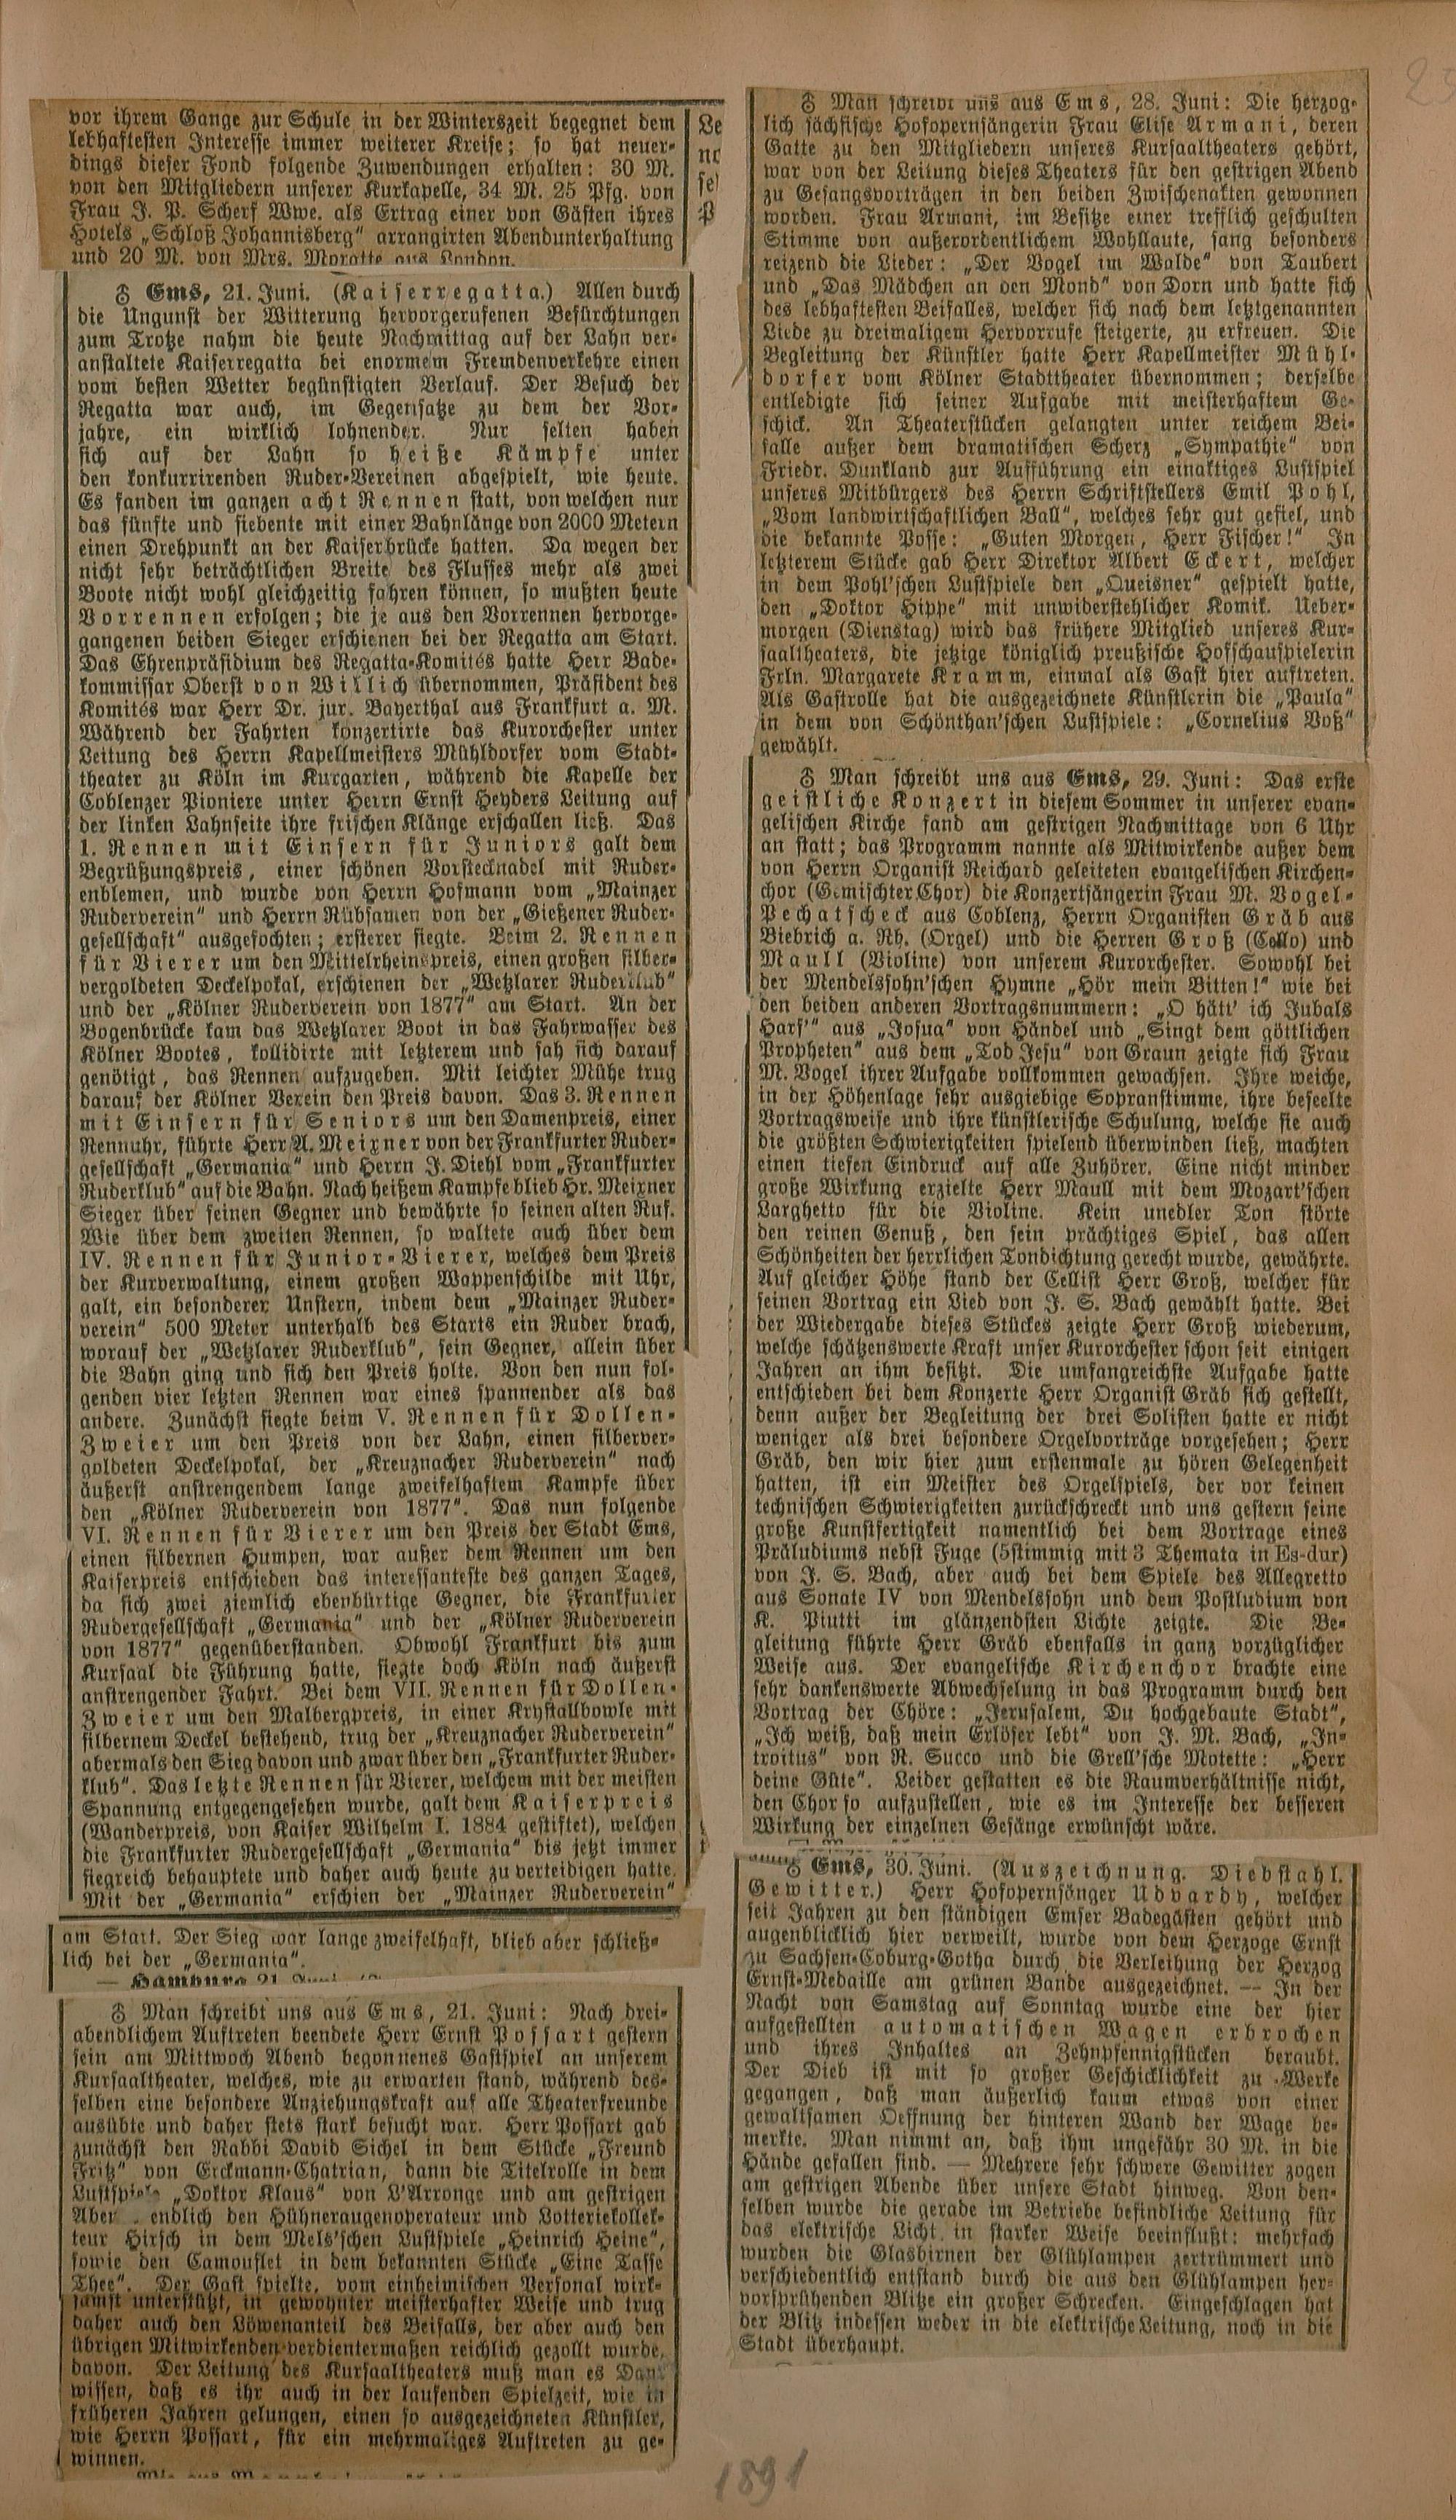 vor ihrem Gange zur Schule in der Winterszeit begegnet dem
lebhaftesten Interesse immer weiterer Kreise; so hat neuer-
dings dieser Fond folgende Zuwendungen erhalten: 30 M.
von den Mitgliedern unserer Kurkapelle, 34 M. 25 Pfg. von
Frau J. P. Scherf Wwe. als Ertrag einer von Gästen ihres
Hotels „Schloß Johannisberg“ arrangirten Abendunterhaltung
und 20 M. von Mrs. Moratte aus London.
Ems, 21. Juni. (Kaiserregatta.) Allen durch
die Ungunst der Witterung hervorgerufenen Befürchtungen
zum Trotze nahm die heute Nachmittag auf der Lahn ver-
anstaltete Kaiserregatta bei enormem Fremdenverkehre einen
vom besten Wetter begünstigten Verlauf. Der Besuch der
Regatta war auch, im Gegensatze zu dem der Vor-
jahre, ein wirklich lohnender. Nur selten haben
sich auf der Lahn so heiße Kämpfe unter
den konkurrirenden Ruder-Vereinen abgespielt, wie heute.
Es fanden im ganzen acht Rennen statt, von welchen nur
das fünfte und siebente mit einer Bahnlänge von 2000 Metern
einen Drehpunkt an der Kaiserbrücke hatten. Da wegen der
nicht sehr beträchtlichen Breite des Flusses mehr als zwei
Boote nicht wohl gleichzeitig fahren können, so mußten heute
Vorrennen erfolgen; die je aus den Vorrennen hervorge-
gangenen beiden Sieger erschienen bei der Regatta am Start.
Das Ehrenpräsidium des Regatta-Komités hatte Herr Bade-
kommissar Oberst von Willich übernommen, Präsident des
Komités war Herr Dr. jur. Bayerthal aus Frankfurt a. M.
Während der Fahrten konzertirte das Kurorchester unter
Leitung des Herrn Kapellmeisters Mühldorfer vom Stadt-
theater zu Köln im Kurgarten, während die Kapelle der
Coblenzer Pioniere unter Herrn Ernst Heyders Leitung auf
der linken Lahnseite ihre frischen Klänge erschallen ließ. Das
1. Rennen mit Einsern für Juniors galt dem
Begrüßungspreis, einer schönen Vorstecknadel mit Ruder-
enblemen, und wurde von Herrn Hofmann vom „Mainzer
Ruderverein“ und Herrn Rübsamen von der „Gießener Ruder-
gesellschaft“ ausgefochten; ersterer siegte. Beim 2. Rennen
für Vierer um den Mittelrheinspreis, einen großen silber-
vergoldeten Deckelpokal, erschienen der „Wetzlarer Ruderklub“
und der „Kölner Ruderverein von 1877“ am Start. An der
Bogenbrücke kam das Wetzlarer Boot in das Fahrwasser des
Kölner Bootes, kollidirte mit letzterem und sah sich darauf
genötigt, das Rennen aufzugeben. Mit leichter Mühe trug
darauf der Kölner Verein den Preis davon. Das 3. Rennen
mit Einsern für Seniors um den Damenpreis, einer
Rennuhr, führte Herr A. Meixner von der Frankfurter Ruder-
gesellschaft „Germania“ und Herrn J. Diehl vom „Frankfurter
Ruderklub“ auf die Bahn. Nach heißem Kampfe blieb Hr. Meixner
Sieger über seinen Gegner und bewährte so seinen alten Ruf.
Wie über dem zweiten Rennen, so waltete auch über dem
IV. Rennen für Junior-Vierer, welches dem Preis
der Kurverwaltung, einem großen Wappenschilde mit Uhr,
galt, ein besonderer Unstern, indem dem „Mainzer Ruder-
verein“ 500 Meter unterhalb des Starts ein Ruder brach,
worauf der „Wetzlarer Ruderklub“, sein Gegner, allein über
die Bahn ging und sich den Preis holte. Von den nun fol-
genden vier letzten Rennen war eines spannender als das
andere. Zunächst siegte beim V. Rennen für Dollen-
Zweier um den Preis von der Lahn, einen silberver-
goldeten Deckelpokal, der „Kreuznacher Ruderverein“ nach
äußerst anstrengendem lange zweifelhaftem Kampfe über
den „Kölner Ruderverein von 1877“. Das nun folgende
VI. Rennen für Vierer um den Preis der Stadt Ems,
einen silbernen Humpen, war außer dem Rennen um den
Kaiserpreis entschieden das interessanteste des ganzen Tages,
da sich zwei ziemlich ebenbürtige Gegner, die Frankfurter
Rudergesellschaft „Germania“ und der „Kölner Ruderverein
von 1877“ gegenüberstanden. Obwohl Frankfurt bis zum
Kursaal die Führung hatte, siegte doch Köln nach äußerst
anstrengender Fahrt. Bei dem VII. Rennen für Dollen-
Zweier um den Malbergpreis, in einer Krystallbowle mit
silbernem Deckel bestehend, trug der „Kreuznacher Ruderverein“
abermals den Sieg davon und zwar über den „Frankfurter Ruder-
klub“. Das letzte Rennen für Vierer, welchem mit der meisten
Spannung entgegengesehen wurde, galt dem Kaiserpreis
(Wanderpreis, von Kaiser Wilhelm I. 1884 gestiftet), welchen
die Frankfurter Rudergesellschaft „Germania“ bis jetzt immer
siegreich behauptete und daher auch heute zu verteidigen hatte.
Mit der „Germania“ erschien der „Mainzer Ruderverein“
am Start. Der Sieg war lange zweifelhaft, blieb aber schließ-
lich bei der „Germania“.
— Hamburg 21. Juni.
Man schreibt uns aus Ems, 21. Juni: Nach drei-
abendlichem Auftreten beendete Herr Ernst Possart gestern
sein am Mittwoch Abend begonnenes Gastspiel an unserem
Kursaaltheater, welches, wie zu erwarten stand, während des-
selben eine besondere Anziehungskraft auf alle Theaterfreunde
ausübte und daher stets stark besucht war. Herr Possart gab
zunächst den Rabbi David Sichel in dem Stücke „Freund
Fritz“ von Erckmann-Chatrian, dann die Titelrolle in dem
Lustspiele „Doktor Klaus“ von L'Arronge und am gestrigen
Aber endlich den Hühneraugenoperateur und Lotteriekollek-
teur Hirsch in dem Mels'schen Lustspiele „Heinrich Heine“,
sowie den Camouflet in dem bekannten Stücke „Eine Tasse
Thee“. Der Gast spielte, vom einheimischen Personal wirk-
samst unterstützt, in gewohnter meisterhafter Weise und trug
daher auch den Löwenanteil des Beifalls, der aber auch den
übrigen Mitwirkenden verdientermaßen reichlich gezollt wurde,
davon. Der Leitung des Kursaaltheaters muß man es Dank
wissen, daß es ihr auch in der laufenden Spielzeit, wie in
früheren Jahren gelungen, einen so ausgezeichneten Künstler,
wie Herrn Possart, für ein mehrmaliges Auftreten zu ge-
winnen.
Man schreibt uns aus Ems, 28. Juni: Die herzog-
lich sächsische Hofopernsängerin Frau Elise Armani, deren
Gatte zu den Mitgliedern unseres Kursaaltheaters gehört,
war von der Leitung dieses Theaters für den gestrigen Abend
zu Gesangsvorträgen in den beiden Zwischenakten gewonnen
worden. Frau Armani, im Besitze einer trefflich geschulten
Stimme von außerordentlichem Wohllaute, sang besonders
reizend die Lieder: „Der Vogel im Walde“ von Taubert
und „Das Mädchen an den Mond“ von Dorn und hatte sich
des lebhaftesten Beifalles, welcher sich nach dem letztgenannten
Liede zu dreimaligem Hervorrufe steigerte, zu erfreuen. Die
Begleitung der Künstler hatte Herr Kapellmeister Mühl-
dorfer vom Kölner Stadttheater übernommen; derselbe
entledigte sich seiner Aufgabe mit meisterhaftem Ge-
schick. An Theaterstücken gelangten unter reichem Bei-
falle außer dem dramatischen Scherz „Sympathie“ von
Friedr. Dunkland zur Aufführung ein einaktiges Lustspiel
unseres Mitbürgers des Herrn Schriftstellers Emil Pohl,
„Vom landwirtschaftlichen Ball“, welches sehr gut gefiel, und
die bekannte Posse: „Guten Morgen, Herr Fischer!“ In
letzterem Stücke gab Herr Direktor Albert Eckert, welcher
in dem Pohl'schen Lustspiele den „Queisner“ gespielt hatte,
den „Doktor Hippe“ mit unwiderstehlicher Komik. Ueber-
morgen (Dienstag) wird das frühere Mitglied unseres Kur-
saaltheaters, die jetzige königlich preußische Hofschauspielerin
Frln. Margarete Kramm, einmal als Gast hier auftreten.
Als Gastrolle hat die ausgezeichnete Künstlerin die „Paula“
in dem von Schönthan'schen Lustspiele: „Cornelius Voß“
gewählt.
Man schreibt uns aus Ems, 29. Juni: Das erste
geistliche Konzert in diesem Sommer in unserer evan-
gelischen Kirche fand am gestrigen Nachmittage von 6 Uhr
an statt; das Programm nannte als Mitwirkende außer dem
von Herrn Organist Reichard geleiteten evangelischen Kirchen-
chor (Gemischter Chor) die Konzertsängerin Frau M. Vogel-
Pechatscheck aus Coblenz, Herrn Organisten Gräb aus
Biebrich a. Rh. (Orgel) und die Herren Groß (Cello) und
Maull (Violine) von unserem Kurorchester. Sowohl bei
der Mendelssohn'schen Hymne „Hör mein Bitten!“ wie bei
den beiden anderen Vortragsnummern: „O hätt' ich Jubals
Harf'“ aus „Josua“ von Händel und „Singt dem göttlichen
Propheten“ aus dem „Tod Jesu“ von Graun zeigte sich Frau
M. Vogel ihrer Aufgabe vollkommen gewachsen. Ihre weiche,
in der Höhenlage sehr ausgiebige Sopranstimme, ihre beseelte
Vortragsweise und ihre künstlerische Schulung, welche sie auch
die größten Schwierigkeiten spielend überwinden ließ, machten
einen tiefen Eindruck auf alle Zuhörer. Eine nicht minder
große Wirkung erzielte Herr Maull mit dem Mozart'schen
Larghetto für die Violine. Kein unedler Ton störte
den reinen Genuß, den sein prächtiges Spiel, das allen
Schönheiten der herrlichen Tondichtung gerecht wurde, gewährte.
Auf gleicher Höhe stand der Cellist Herr Groß, welcher für
seinen Vortrag ein Lied von J. S. Bach gewählt hatte. Bei
der Wiedergabe dieses Stückes zeigte Herr Groß wiederum,
welche schätzenswerte Kraft unser Kurorchester schon seit einigen
Jahren an ihm besitzt. Die umfangreichste Aufgabe hatte
entschieden bei dem Konzerte Herr Organist Gräb sich gestellt,
denn außer der Begleitung der drei Solisten hatte er nicht
weniger als drei besondere Orgelvorträge vorgesehen; Herr
Gräb, den wir hier zum erstenmale zu hören Gelegenheit
hatten, ist ein Meister des Orgelspiels, der vor keinen
technischen Schwierigkeiten zurückschreckt und uns gestern seine
große Kunstfertigkeit namentlich bei dem Vortrage eines
Präludiums nebst Fuge (5stimmig mit 3 Themata in Es-dur)
von J. S. Bach, aber auch bei dem Spiele des Allegretto
aus Sonate IV von Mendelssohn und dem Postludium von
K. Piutti im glänzendsten Lichte zeigte. Die Be-
gleitung führte Herr Gräb ebenfalls in ganz vorzüglicher
Weise aus. Der evangelische Kirchenchor brachte eine
sehr dankenswerte Abwechselung in das Programm durch den
Vortrag der Chöre: „Jerusalem, Du hochgebaute Stadt“,
„Ich weiß, daß mein Erlöser lebt“ von J. M. Bach, „In-
troitus“ von R. Succo und die Grell'sche Motette: „Herr
deine Güte“. Leider gestatten es die Raumverhältnisse nicht,
den Chor so aufzustellen, wie es im Interesse der besseren
Wirkung der einzelnen Gesänge erwünscht wäre.
Ems, 30. Juni. (Auszeichnung. Diebstahl.
Gewitter.) Herr Hofopernsänger Udvardy, welcher
seit Jahren zu den ständigen Emser Badegästen gehört und
augenblicklich hier verweilt, wurde von dem Herzoge Ernst
zu Sachsen-Coburg-Gotha durch die Verleihung der Herzog
Ernst-Medaille am grünen Bande ausgezeichnet. — In der
Nacht von Samstag auf Sonntag wurde eine der hier
aufgestellten automatischen Wagen erbrochen
und ihres Inhaltes an Zehnpfennigstücken beraubt.
Der Dieb ist mit so großer Geschicklichkeit zu Werke
gegangen, daß man äußerlich kaum etwas von einer
gewaltsamen Oeffnung der hinteren Wand der Wage be-
merkte. Man nimmt an, daß ihm ungefähr 30 M. in die
Hände gefallen sind. — Mehrere sehr schwere Gewitter zogen
am gestrigen Abende über unsere Stadt hinweg. Von den-
selben wurde die gerade im Betriebe befindliche Leitung für
das elektrische Licht in starker Weise beeinflußt: mehrfach
wurden die Glasbirnen der Glühlampen zertrümmert und
verschiedentlich entstand durch die aus den Glühlampen her-
vorsprühenden Blitze ein großer Schrecken. Eingeschlagen hat
der Blitz indessen weder in die elektrische Leitung, noch in die
Stadt überhaupt.
1891